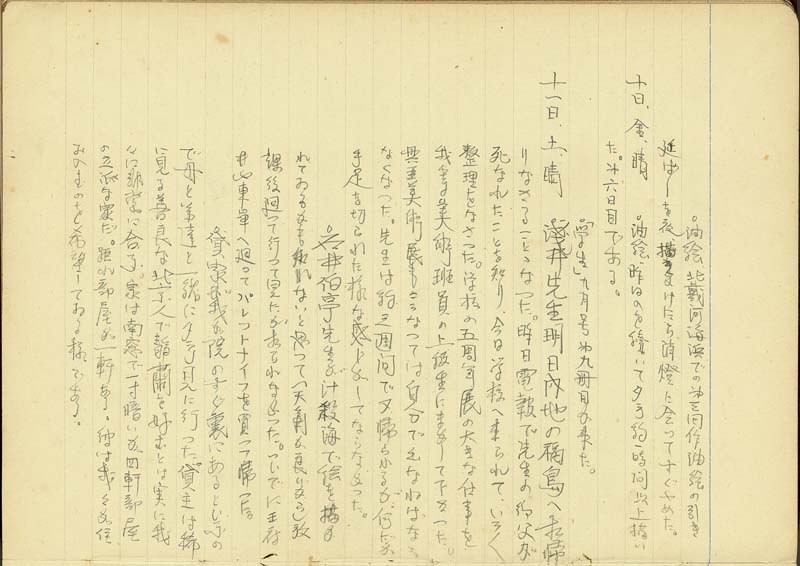 ○油絵北戴河海浜での第三回作油絵の引き
延ばしを夜描きかけたら消燈に会ってすぐやめた。
十日、金、晴 ○油絵、昨日のを続いて夕方約一時間以上描い
た。第六日目である。
○「学生」九月号、第九冊目が来た。
十一日、土、晴 ○ 井先生明日内地の福島へお帰
りなさることになった。昨日電報で先生の御父が
死なれたことを知り、今日学校へ来られて、いろ〱
整理をなさった。学校の五周年展の大きな仕事を
我等美術班員の上級生にまかして下さった。
興亜美術展もこうなっては自分でせなねばなら
なくなった。先生は約三週間で又帰られるが、何だか
手足を切られた様な感じがしてならなかった。
○石井伯亭先生が什殺海で絵を描か
れておるかも知れないと思って(天気が良いから)放
課後廻って行って見たがおられなかった。ついでに王府
井 東単へ廻ってパレットナイフを買って帰った。
○貸家が我が院のすぐ裏にあるというの
で母と弟達と一緒に夕方見に行った。貸主は稀
に見る善良な北京人で 蘭を好むとは実に我
 に非常に合う。家は南窓で一寸暗いが四軒部屋
の立派な家だ。 れ部屋が一軒あり。 は我々が住
むのを希望しておる様である。